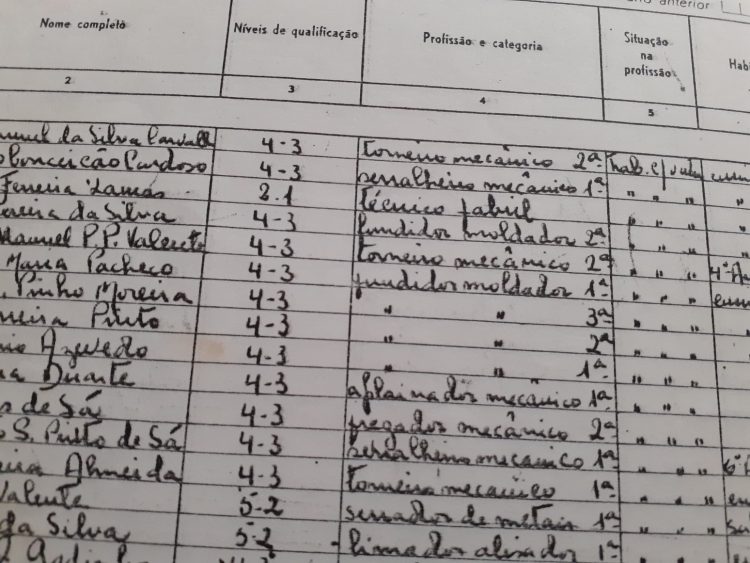 anterior
Nome completo Níveis de qualificação Profissão e categoria Situação na profissão Hab
2 3 4 5
da Silva 4-3 torneiro mecânico 2ª hab. c/
Conceição Cardoso 4-3 serralheiro mecânico 1ª " " "
Ferreira 2.1 técnico fabril " " "
da Silva 4-3 fundidor moldador 2ª " " "
Manuel P.P. Valente 4-3 torneiro mecânico 2ª " " "
Maria Pacheco 4-3 fundidor moldador 1ª " " "
Pinho Moreira 4-3 " " 3ª " " "
Pinto 4-3 " " 2ª " " "
Azevedo 4-3 " " 1ª " " "
Duarte 4-3 aplainador mecânico 1ª " " "
de Sá 4-3 fregador mecânico 2ª " " "
S. Pinto de Sá 4-3 serralheiro mecanico 1ª " " "
Almeida 4-3 torneiro mecanico 1ª " " "
Valente 5-2 serrador de metais 1ª " " "
da Silva 5-2 limador alisador 1ª " " "